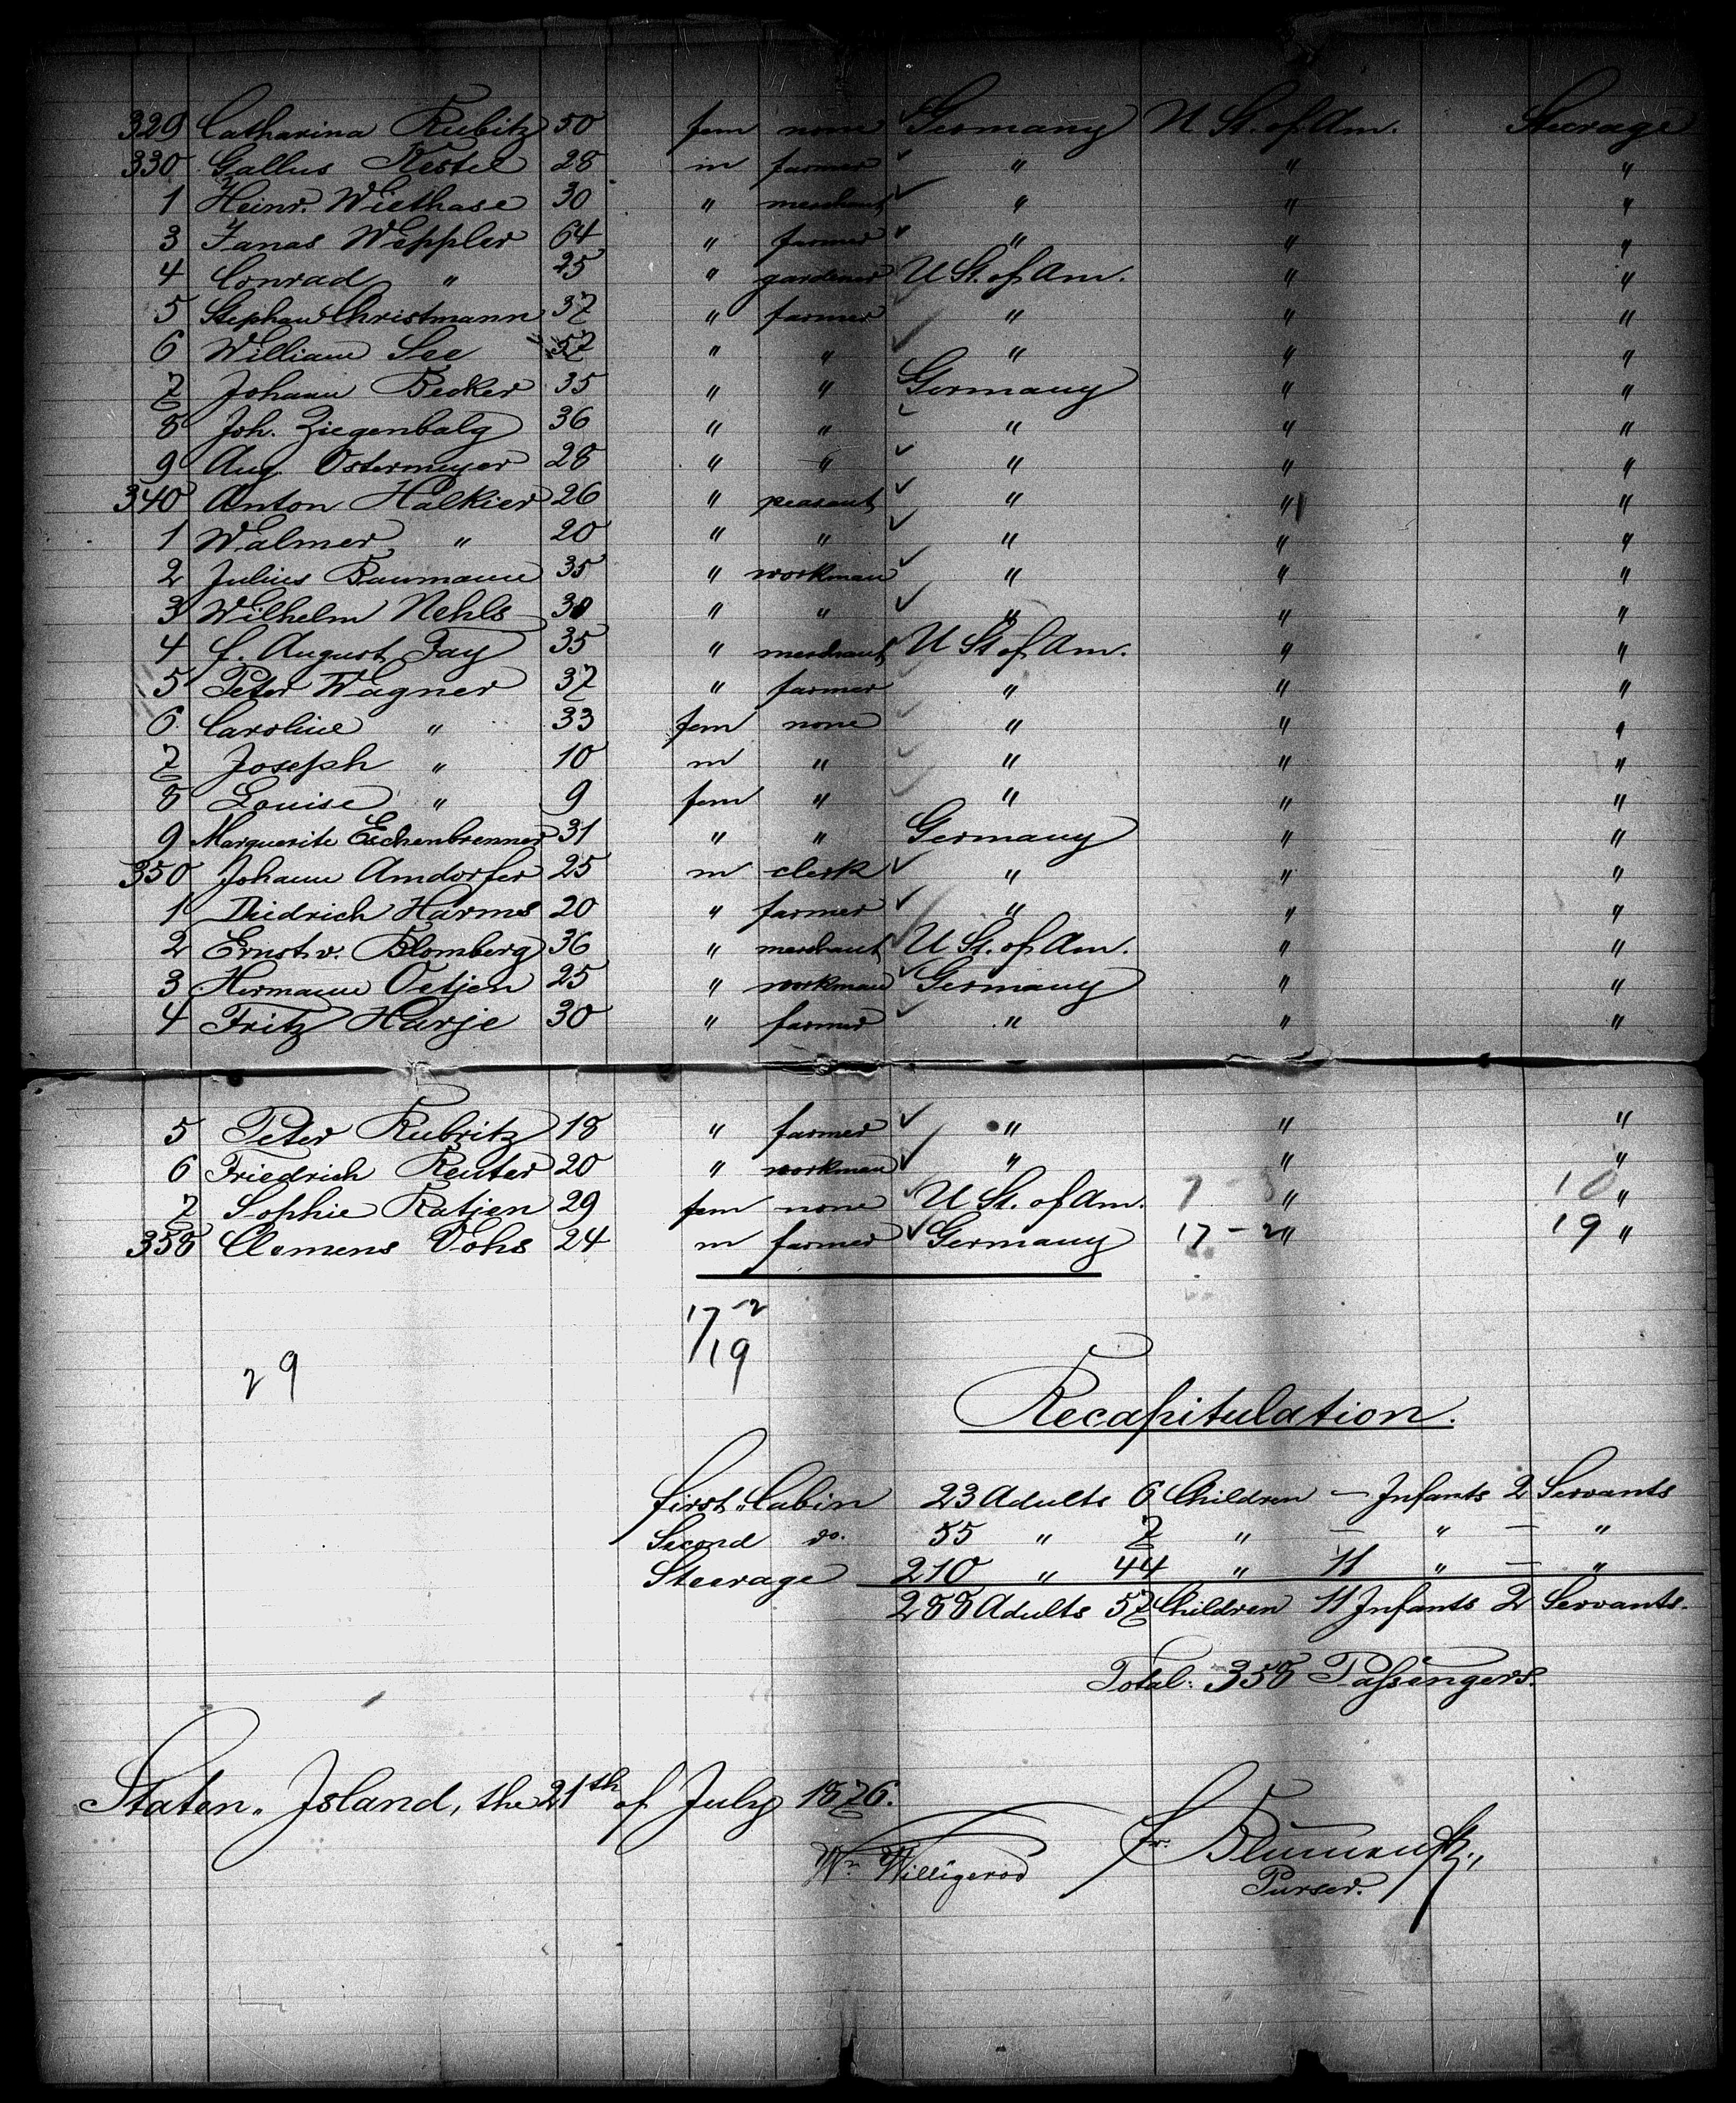 329 Catharina Rubitz 50 fem none Germany U St. of Am. Steerage
330 Gallus Kestel 28 m farmer " " "
1 Heinr. Wiethase 30 " merchant " " "
3 Janas Weppler 64 " farmer " " "
4 Conrad " 25 " gardener U St. of Am. " "
5 Stephan Christmann 37 " farmer " " "
6 William See 57 " " " " "
7 Johann Becker 35 " " Germany " "
8 Joh. Ziegenbalg 36 " " " " "
9 Aug. Ostermeyer 28 " " " " "
340 Anton Halkier 26 " peasant " " "
1 Walmer " 20 " " " " "
2 Julius Baumann 35 " workman " " "
3 Wilhelm Nehls 30 " " " " "
4 C. August Fay 35 " merchant U St of Am. " "
5 Peter Wagner 37 " farmer " " "
6. Caroline " 33 fem none " " "
7 Joseph " 10 m " " " "
8 Louise " 9 fem " " " "
9 Marguerite Eschenbrenner 31 " " Germany " "
350 Johann Amdorfer 25 m clerk " " "
1 Diedrich Harms 20 " farmer " " "
2 Ernst v. Blomberg 36 " merchant U St. of Am. " "
3 Hermann Oetjen 25 " workman Germany " "
4 Fritz Harje 30 " farmer " " "
5 Peter Rubritz 18 " farmer " " "
6 Friedrich Reuter 20 " workman " " "
7 Sophie Ratjen 29 fem none U St. of Am. 7 - 3 " 10 "
358 Clemens Vohs 24 m farmer Germany 17 - 2 " 19 "
17 - 2
19
29
Recapitulation.
First Cabin 23 Adults 6 Children — Infants 2 Servants
Second do. 55 " 7 " — " — "
Steerage 210 " 44 " 11 " — "
288 Adults 57 Children 11 Infants 2 Servants.
Total: 358 Passengers.
Staten Island, the 21th of July 1876.
Wm Willigerod
Fr.
Purser.